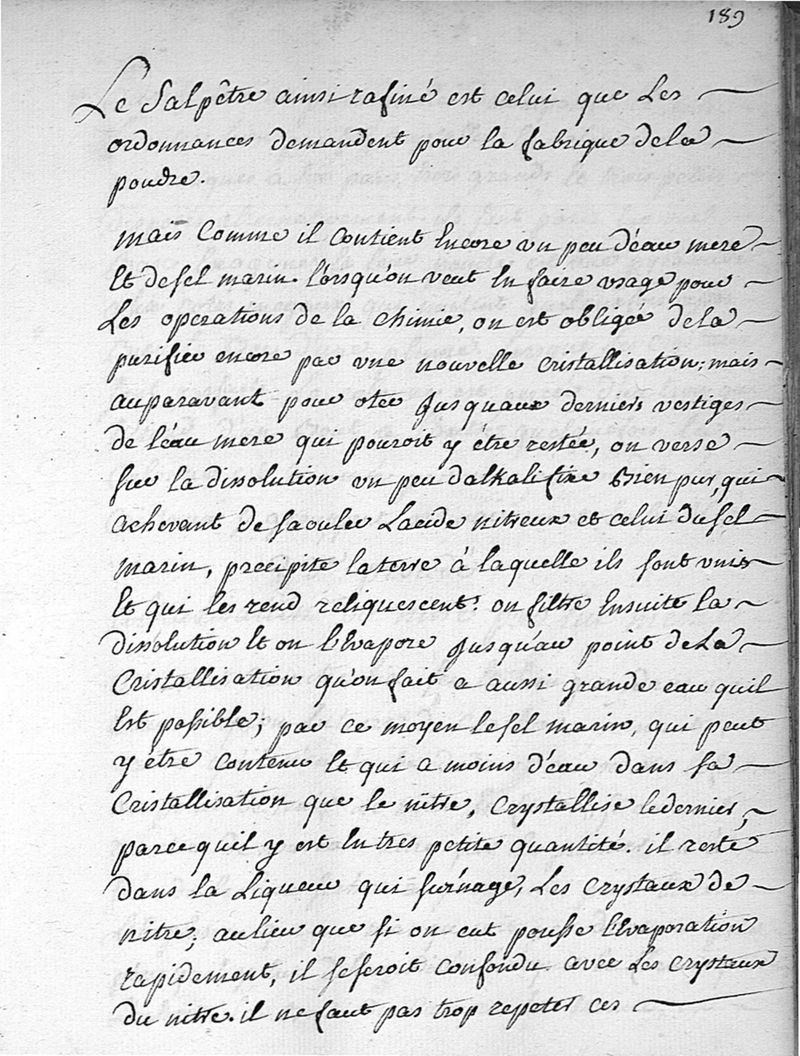 189
Le Salpêtre ainsi rafiné est celui que Les
ordonnances demandent pour la fabrique dela
poudre.
mais Comme il Contient Encore un peu d'eau mere
Et desel marin. lorsqu'on veut En faire usage pour
Les operations de la chimie, on est obligée dela
purifier encore par une nouvelle cristallisation; mais
auparavant pour oter Jusquaux derniers vestiges
de l'éau mere qui pouroit y étre restée, on verse
sur la dissolution un peu dalkali fixe Bien pur, qui
achevant de saouler Lacide nitreux et celui dusel
marin, precipite laterre à laquelle ils sont unis
Et qui les rend reliquescent. on filtre Ensuite la
dissolution Et on l'Evapore Jusqu'au point de La
Cristallisation qu'on fait a aussi grande eau quil
Est possible; par ce moyen lesel marin, qui peut
y etre contenu Et qui a moins d'éau dans sa
Cristallisation que le nitre, Crystallise ledernier,
parce quil y est En tres petite quantité. il reste
dans la Liqueur qui surnage, Les Crystaux de
nitre; aulieu que si on eut pousse l'Evaporation
rapidement, il seseroit confondu avec Les crystaux
du nitre. il ne faut pas trop repeter ces